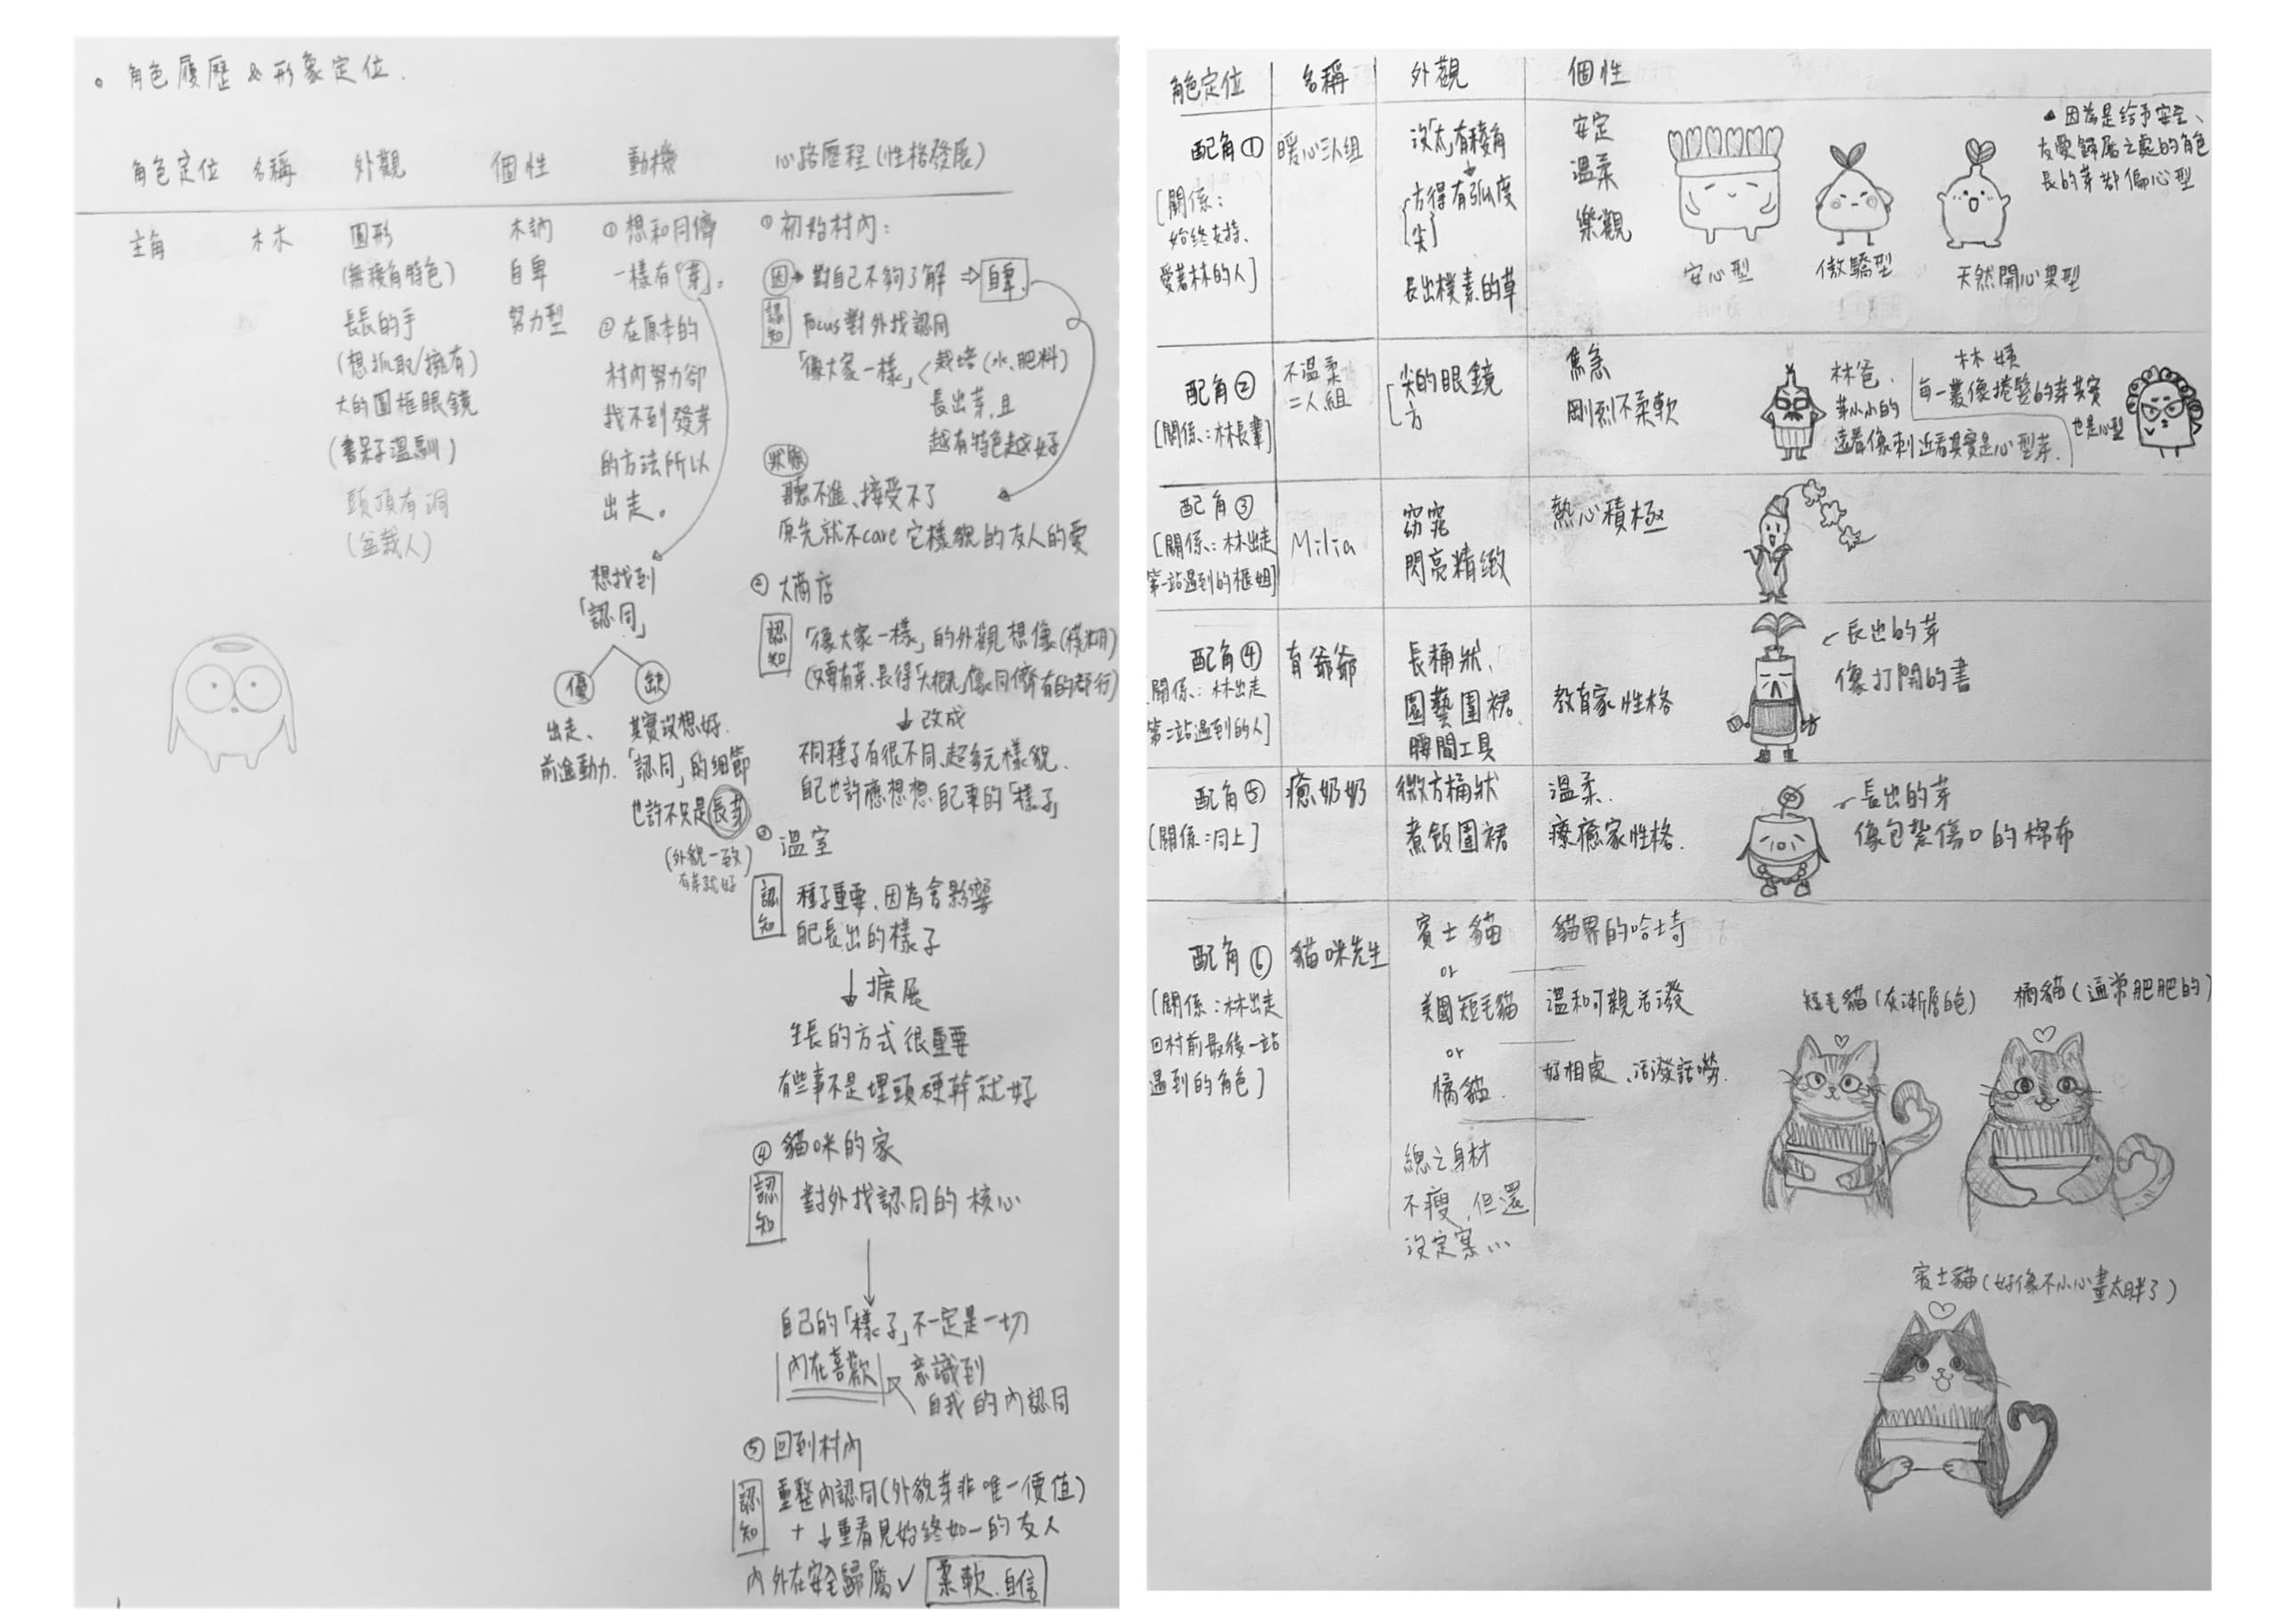 。角色履歷 & 形象定位.
角色定位 名稱 外觀 個性 動機 心路歷程(性格發展)
主角
木木
圓形
(無稜角特色)
長長的手
(想抓取/擁有)
大的圓框眼鏡
(書呆子溫馴)
頭頂有洞
(盆栽人)
木訥
自卑
努力型
① 想和同儕
一樣有「芽」。
② 在原本的
村內努力卻
找不到發芽
的方法所以
出走。
想找到
「認同」
優
缺
出走、
前進動力.
其實沒想好.
「認同」的細節
也許不只是長芽
(外貌一致)
有芽就好
① 初始村內:
因→對自己不夠了解 ⇒ 自卑.
認知
Focus 對外找認同
「像大家一樣」
栽培(水、肥料)
長出芽,且
越有特色越好
狀態
聽不進、接受不了
原先就不care它樣貌的友人的愛
② 大商店
認知
「像大家一樣」的外觀想像(模糊)
(只要有芽、長得「大概」像同儕有的都行)
↓改成
不同種子有很不同、超多元樣貌、
自己也許應想想自己要的「樣子」
③ 溫室
認知
種子重要、因為會影響
自己長出的樣子
↓擴展
生長的方式很重要
有些事不是埋頭硬幹就好
④ 貓咪的家
認知
對外找認同的核心
自己的「樣子」不一定是一切
內在喜歡
意識到
自我的內認同
⑤ 回到村內
認知
重整內認同(外貌芽非唯一價值)
+ ↓重看見始終如一的友人
內外在安全歸屬✓ 柔軟.自信
角色定位 名稱 外觀 個性
配角① 暖心三人組
[關係:
始終支持、
愛著林的人]
沒「太」有稜角
方得有弧度
尖
長出樸素的草
安定
溫柔
樂觀
安心型
傲驕型
天然開心果型
▲因為是給予安全、
友愛歸屬之處的角色
長的芽都偏心型
配角②
[關係:林長輩]
不溫柔
二人組
尖的眼鏡
方
焦急
剛烈不柔軟
林爸、
芽小小的
遠看像刺近看其實是心型芽.
林姨
每一叢像捲髮的芽其實
也是心型
配角③
[關係:林出走
第一站遇到的櫃姐]
Milia
窈窕
閃亮精緻
熱心積極
配角④
[關係:林出走
第二站遇到的人]
育爺爺
長桶狀、
園藝圍裙、
腰間工具
教育家性格
長出的芽
像打開的書
配角⑤
[關係:同上]
癒奶奶
微方桶狀
煮飯圍裙
溫柔.
療癒家性格.
長出的芽
像包紮傷口的棉布
配角⑥
[關係:林出走
回村前最後一站
遇到的角色]
貓咪先生
賓士貓
or
美國短毛貓
or
橘貓.
總之身材
不瘦,但還
沒定案...
貓界的哈士奇
溫和可親活潑
好相處、活潑話嘮.
短毛貓(灰漸層色)
橘貓(通常肥肥的)
賓士貓(好像不小心畫太胖了)